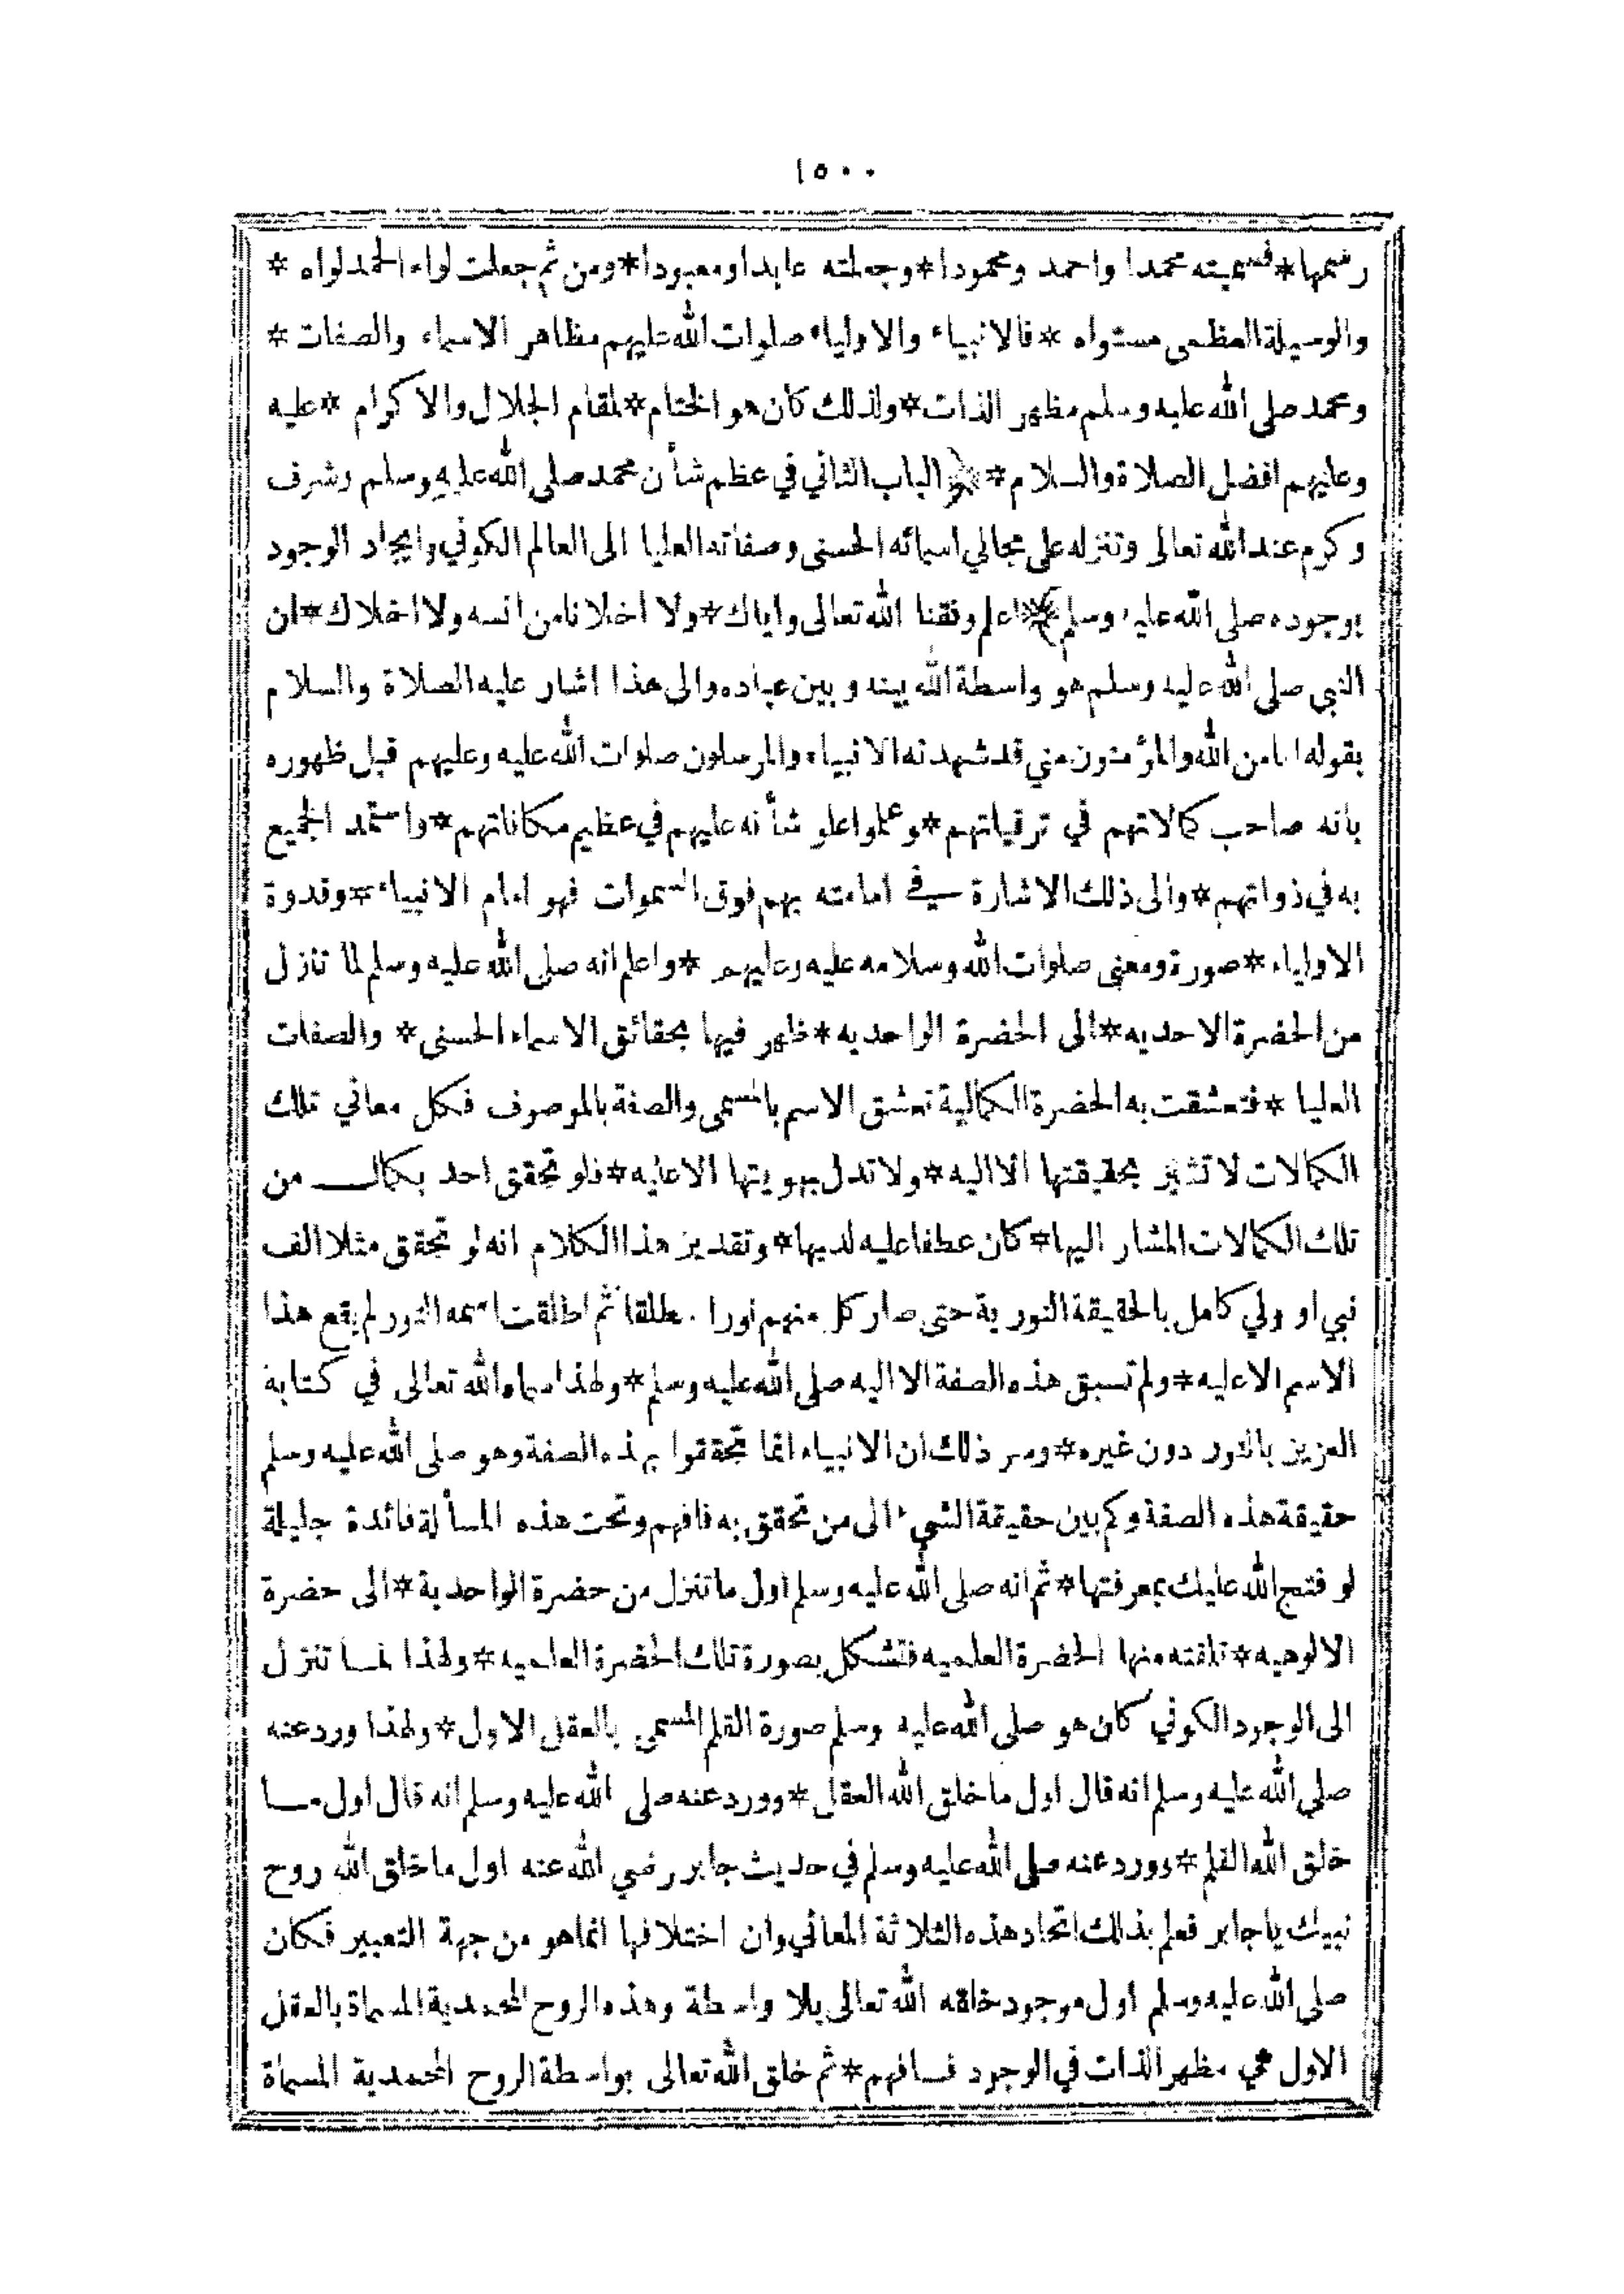 ١٥٠٠
رسمها * فسميته محمدا واحمد ومحمودا * وجعلته عابدا ومعبودا * ومن ثم جعلت لواء الحمد لواه *
والوسيلة العظمى مستواه * فالانبياء والاولياء صلوات الله عليهم مظاهر الاسماء والصفات *
ومحمد صلى الله عليه وسلم مظهر الذات * ولذلك كان هو الختام * لمقام الجلال والاكرام * عليه
وعليهم افضل الصلاة والسلام * ﴿ الباب الثاني في عظم شأن محمد صلى الله عليه وسلم وشرف
وكرم عند الله تعالى وتنزله على مجالي اسمائه الحسنى وصفاته العليا الى العالم الكوني وايجاد الوجود
بوجوده صلى الله عليه وسلم ﴾ اعلم وفقنا الله تعالى واياك * ولا اخلانا من انسه ولا اخلاك * ان
النبي صلى الله عليه وسلم هو واسطة الله بينه وبين عباده والى هذا اشار عليه الصلاة والسلام
بقوله انا من الله والمؤمنون مني قد شهدته الانبياء والمرسلون صلوات الله عليه وعليهم قبل ظهوره
بانه صاحب كمالاتهم في ترقياتهم * وعملوا علو شأنه عليهم في عظيم مكاناتهم * واستمد الجميع
به في ذواتهم * والى ذلك الاشارة في امامته بهم فوق السموات فهو امام الانبياء * وقدوة
الاولياء * صورة ومعنى صلوات الله وسلامه عليه وعليهم * واعلم انه صلى الله عليه وسلم لما تنازل
من الحضرة الاحديه * الى الحضرة الواحديه * ظهر فيها بحقائق الاسماء الحسنى * والصفات
العليا * فتعشقت به الحضرة الكمالية تعشق الاسم بالمسمى والصفة بالموصوف فكل معاني تلك
الكمالات لا تشير بحقيقتها الا اليه * ولا تدل بهويتها الا عليه * فلو تحقق احد بكمال من
تلك الكمالات المشار اليها * كان عطفا عليه لديها * وتقدير هذا الكلام انه لو تحقق مثلا الف
نبي او ولي كامل بالحقيقة النورية حتى صار كل منهم نورا مطلقا ثم اطلقت اسمه النور لم يقع هذا
الاسم الا عليه * ولم تسبق هذه الصفة الا اليه صلى الله عليه وسلم * ولهذا سماه الله تعالى في كتابة
العزيز بالنور دون غيره * وسر ذلك ان الانبياء انما تحققوا بهذه الصفة وهو صلى الله عليه وسلم
حقيقة هذه الصفة وكم بين حقيقة الشيء الى من تحقق به فافهم وتحت هذه المسألة فائدة جليلة
لو فتح الله عليك بمعرفتها * ثم انه صلى الله عليه وسلم اول ما تنزل من حضرة الواحدية * الى حضرة
الالوهيه * تلقته منها الحضرة العلميه فتشكل بصورة تلك الحضرة العلميه * ولهذا لما تنزل
الى الوجود الكوني كان هو صلى الله عليه وسلم صورة القلم المسمى بالعقل الاول * ولهذا ورد عنه
صلى الله عليه وسلم انه قال اول ما خلق الله العقل * وورد عنه صلى الله عليه وسلم انه قال اول ما
خلق الله القلم * وورد عنه صلى الله عليه وسلم في حديث جابر رضي الله عنه اول ما خلق الله روح
نبيك يا جابر فعلم بذلك اتحاد هذه الثلاثة المعاني وان اختلافها انما هو من جهة التعبير فكان
صلى الله عليه وسلم اول موجود خلقه الله تعالى بلا واسطة وهذه الروح المحمدية المسماة بالعقل
الاول هي مظهر الذات في الوجود فافهم * ثم خلق الله تعالى بواسطة الروح المحمدية المسماة